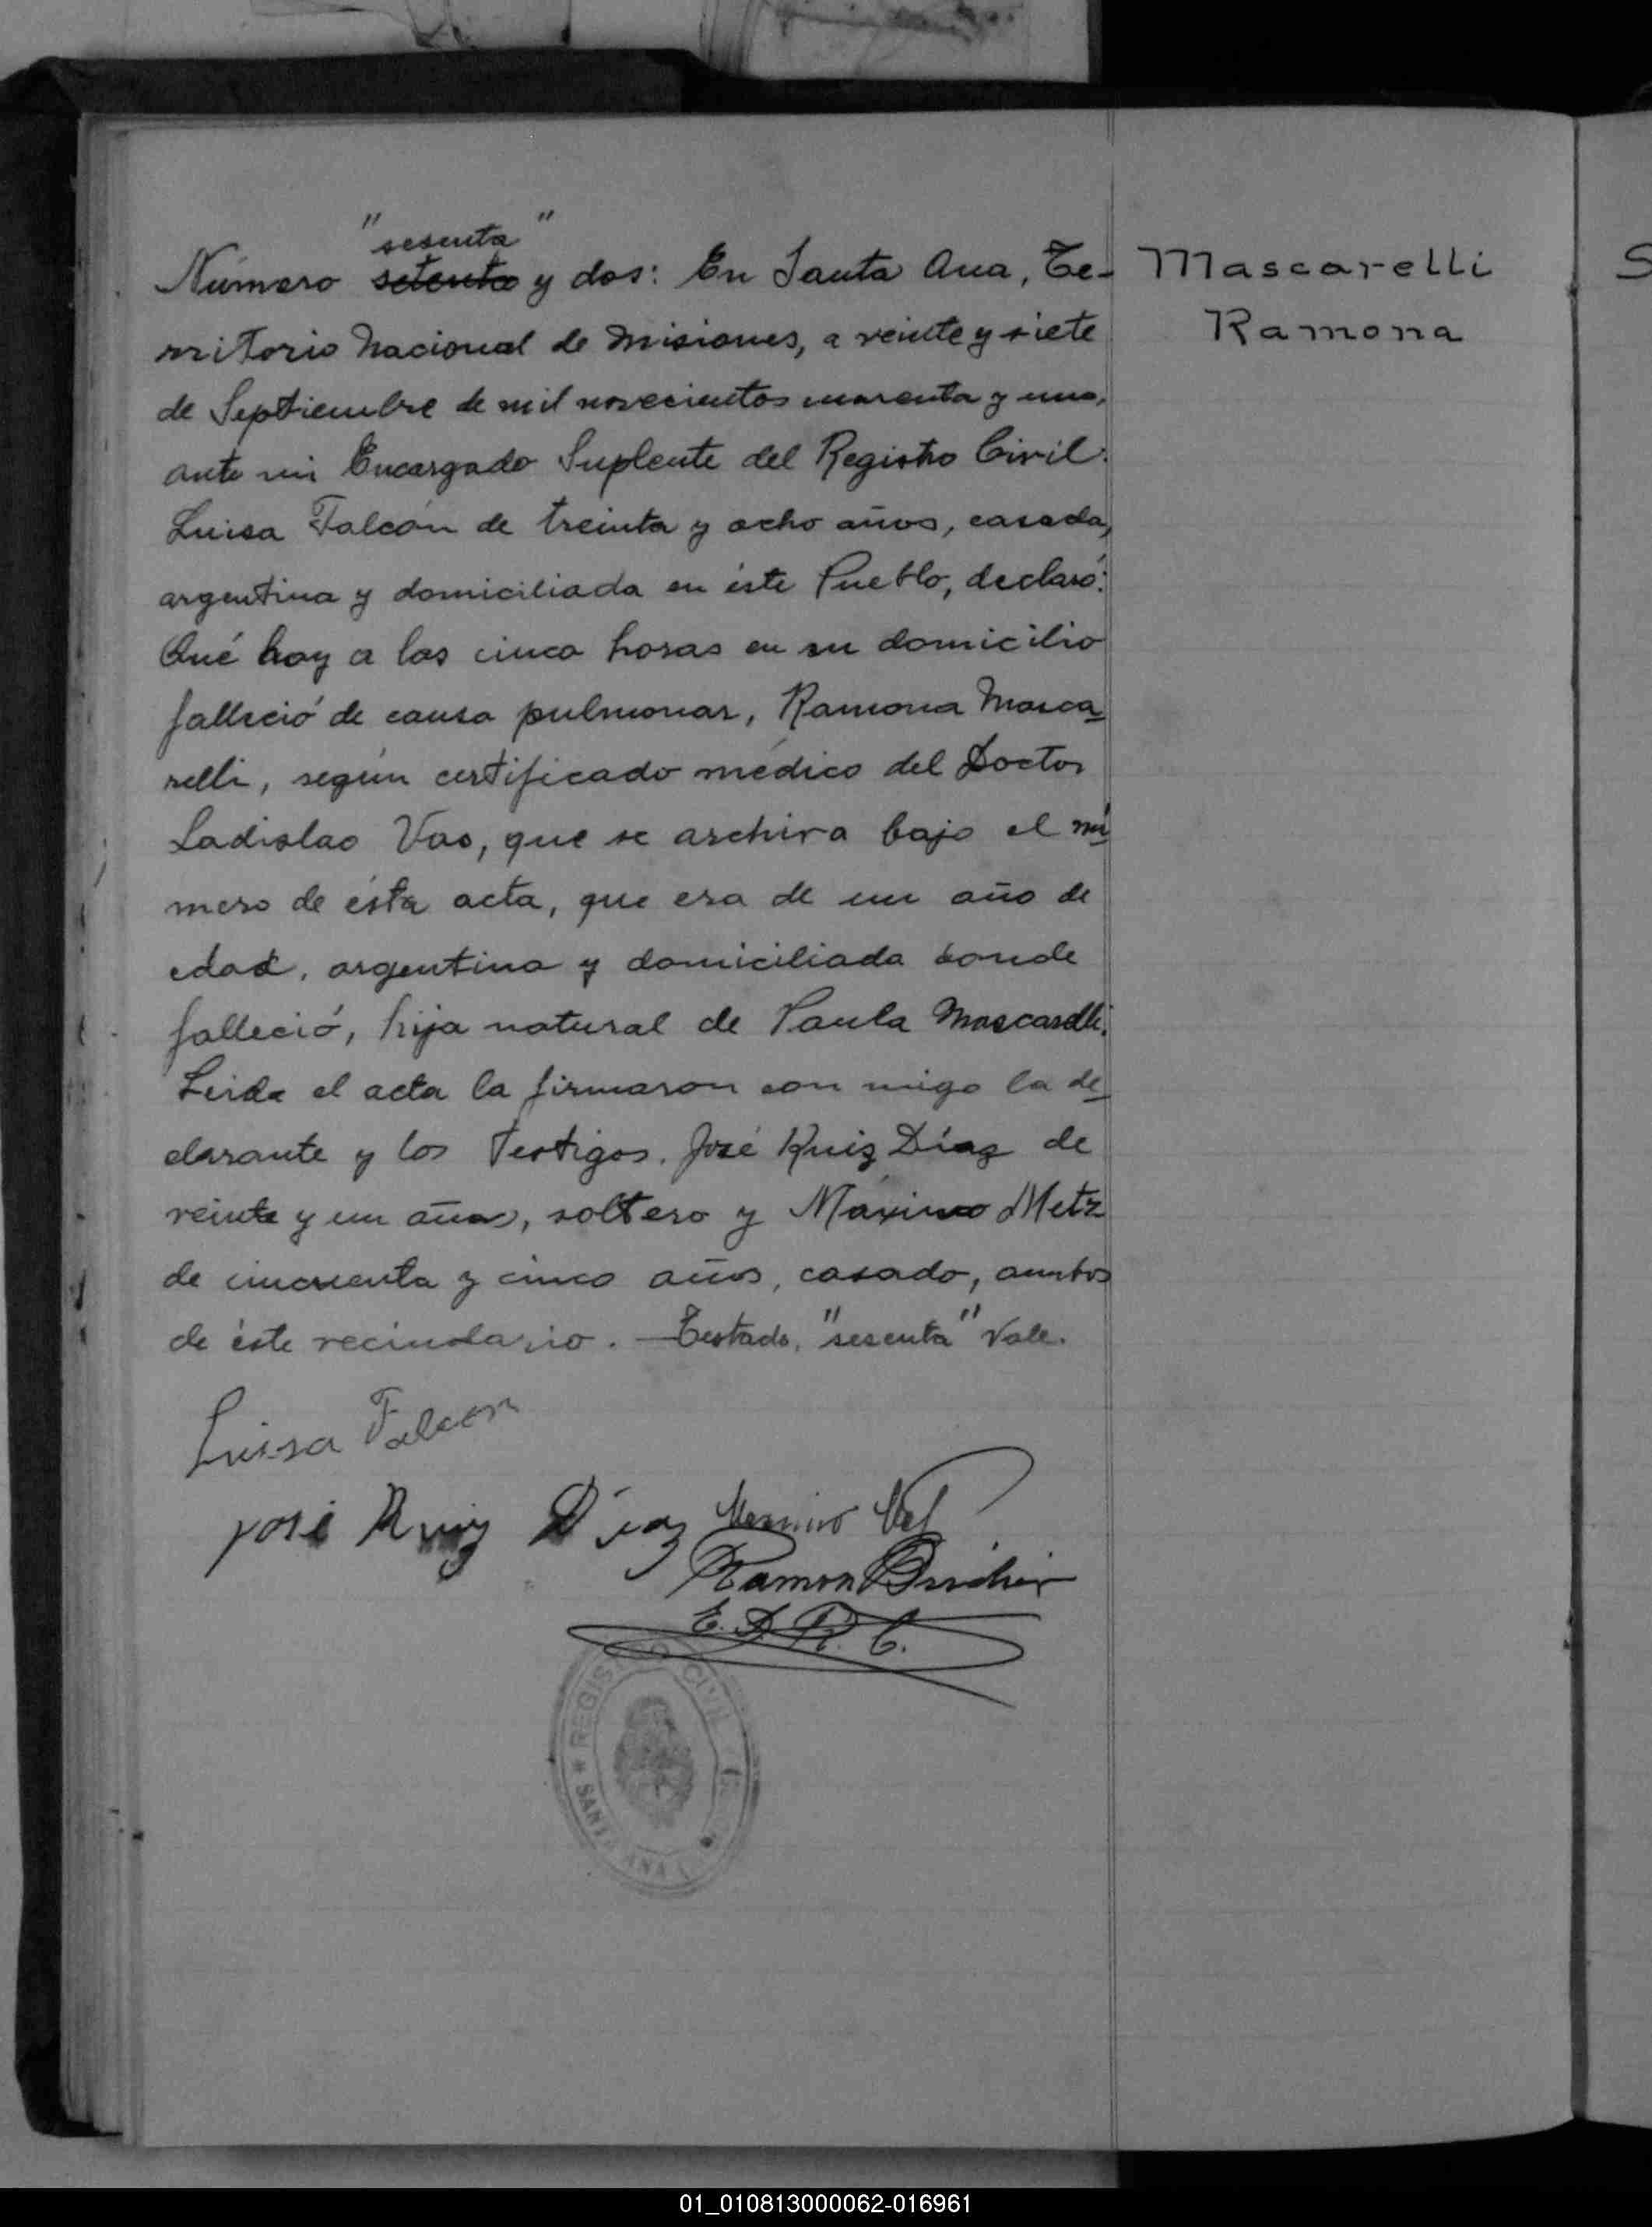 "sesenta"
Número setenta y dos: En Santa Ana, Te-
rritorio Nacional de Misiones, a veinte y siete
de Septiembre de mil novecientos cuarenta y uno,
ante mi Encargado Suplente del Registro Civil:
Luisa Falcón de treinta y ocho años, casada,
argentina y domiciliada en éste Pueblo, declaró:
Qué hoy a las cinco horas en su domicilio
falleció de causa pulmonar, Ramona Masca
relli, según certificado médico del Doctor
Ladislao Vas, que se archiva bajo el nú
mero de ésta acta, que era de un año de
edad, argentina y domiciliada donde
falleció, hija natural de Paula Mascarelli.
Leida el acta la firmaron con migo la de
clarante y los Testigos. José Ruiz Díaz de
veinte y un años, soltero y Máximo Metz
de cincuenta y cinco años, casado, ambos
de éste vecindario. — Testado, "sesenta" Vale.
Luisa Falcon
José Ruiz Díaz
Ramon
E. D. R. C.
REGISTRO CIVIL
SANTA ANA
Mascarelli
Ramona
S
01_010813000062-016961